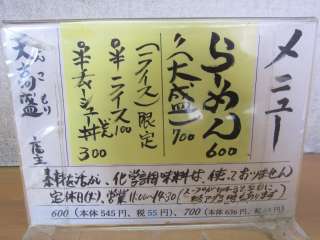 メニュー
らーめん 600
〃(大盛) 700
(ライス)限定
半ライス 100
半チャーシュー丼 300
てんこもり
店主
化学調味料は使っておりません
定休日(火)、営業11:00〜14:30
600(本体545円、税55円)、700(本体636円、税64円)